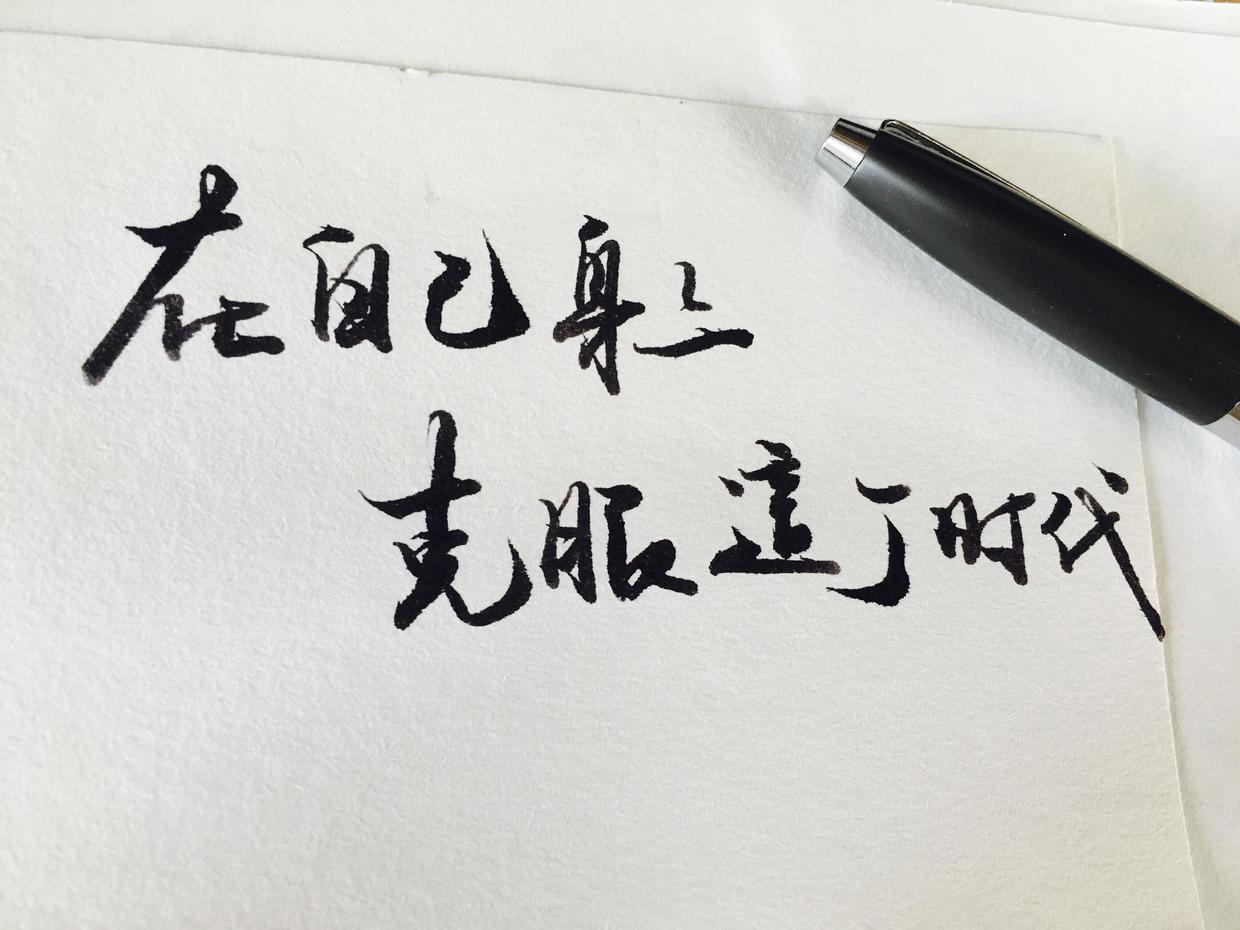 在自己身上
克服這个时代